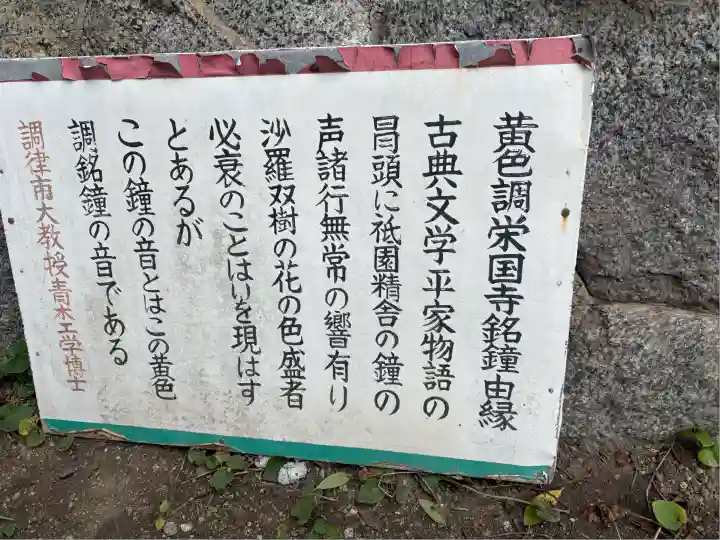 黄色調栄国寺銘鐘由縁
古典文学平家物語の
冒頭に祇園精舎の鐘の
声諸行無常の響有り
沙羅双樹の花の色盛者
必衰のことはりを現はす
とあるが
この鐘の音とはこの黄色
調銘鐘の音である
調律市大教授青木工学博士